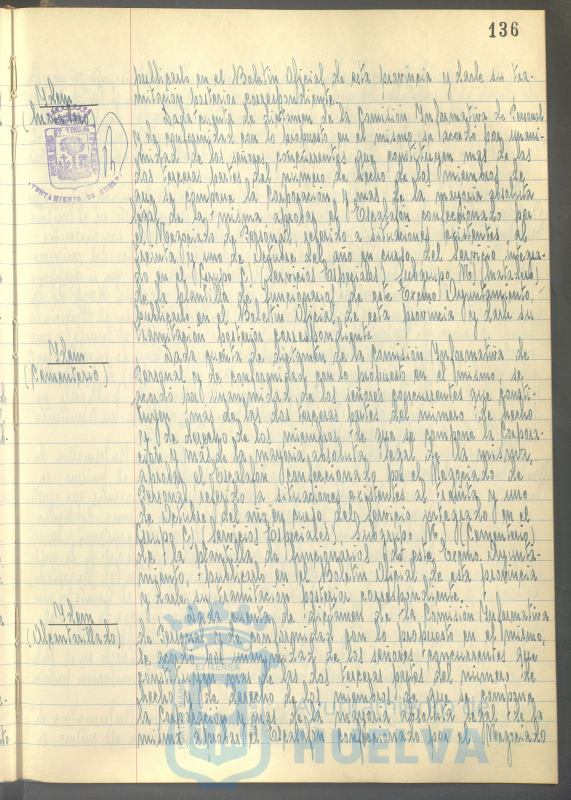 136
publicarlo en el Boletin Oficial de esta provincia y darle su tra-
mitación posterior correspondiente.
Idem
(Matadero)
Dada cuenta de dictamen de la Comisión Informativa de Personal
y de conformidad con lo propuesto en el mismo, se acordó por unani-
midad de los señores concurrentes que constituyen más de las
dos terceras partes del número de hecho de los miembros de
que se compone la Corporación y más de la mayoría absoluta
legal de la misma aprobar el Escalafón confeccionado por
el Negociado de Personal, referido a situaciones existentes al
treinta y uno de Octubre del año en curso, del servicio integra-
do en el Grupo C) (Servicios Especiales) Subgrupo M) (Matadero)
de la plantilla de funcionarios de este Excmo. Ayuntamiento,
publicarlo en el Boletin Oficial de esta provincia y darle su
tramitación posterior correspondiente.
Idem
(Cementerio)
Dada cuenta de dictamen de la Comisión Informativa de
Personal y de conformidad con lo propuesto en el mismo, se
acordó por unanimidad de los señores concurrentes que consti-
tuyen más de las dos terceras partes del número de hecho
y de derecho de los miembros de que se compone la Corpora-
ción y más de la mayoría absoluta legal de la misma,
aprobar el Escalafón confeccionado por el Negociado de
Personal, referido a situaciones existentes al treinta y uno
de Octubre del año en curso del servicio integrado en el
Grupo C) (Servicios Especiales), Subgrupo (Cementerio)
de la plantilla de funcionarios de este Excmo. Ayunta-
miento, publicarlo en el Boletin Oficial de esta provincia
y darle su tramitación posterior correspondiente.
Idem
(Alcantarillado)
Dada cuenta de dictamen de la Comisión Informativa
de Personal y de conformidad con lo propuesto en el mismo,
se acordó por unanimidad de los señores concurrentes que
constituyen más de las dos terceras partes del número de
hecho y de derecho de los miembros de que se compone
la Corporación y más de la mayoría absoluta legal de la
misma aprobar el Escalafón confeccionado por el Negociado
AYUNTAMIENTO DE HUELVA
Ayuntamiento de
HUELVA